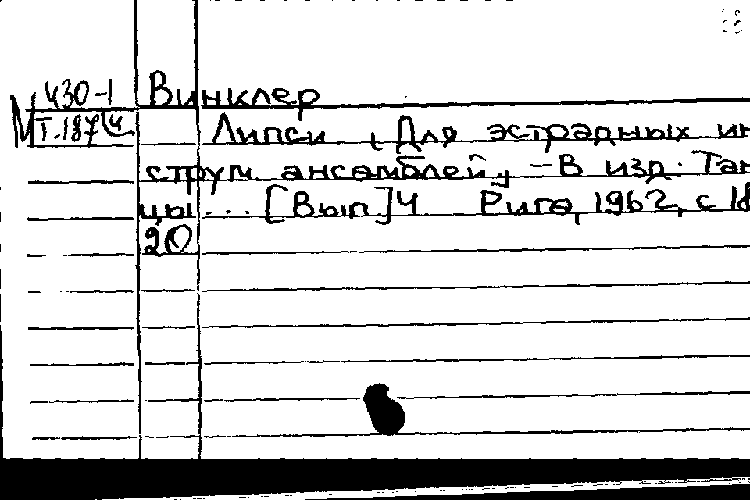 М 430-1
Т.187/4
Винклер
Липси. (Для эстрадных ин
струм. ансамблей). - В изд: Тан
цы... [Вып]4 Рига, 1962, с 18
20